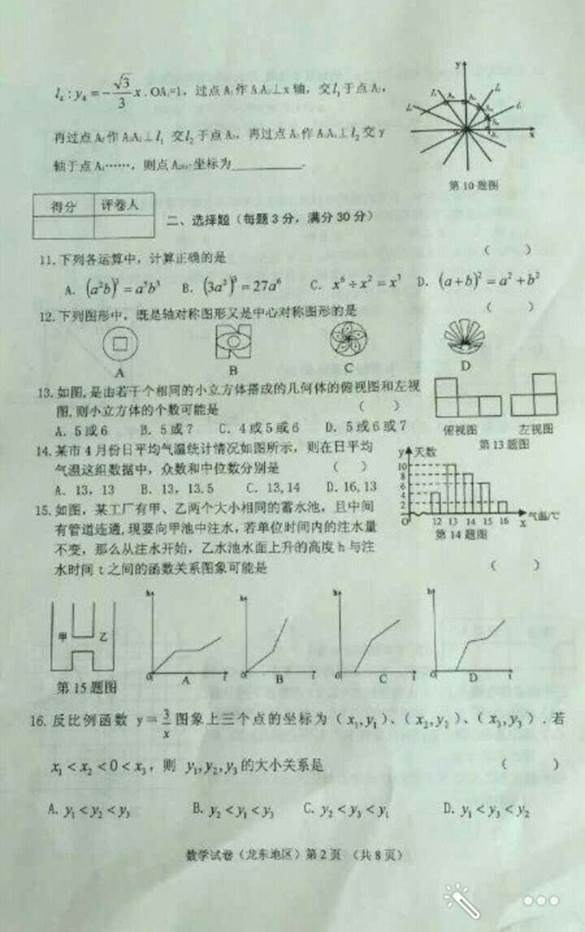 l₄ : y₄ = -√3/3 x . OA₁=1, 过点 A₁ 作 A₁A₂⊥x 轴, 交 l₁ 于点 A₂,
再过点 A₂ 作 A₂A₃⊥l₁ 交 l₂ 于点 A₃, 再过点 A₃ 作 A₃A₄⊥l₂ 交 y
轴于点 A₄……, 则点 坐标为________.
y
x
第 10 题图
得分 评卷人
二、选择题（每题 3 分，满分 30 分）
11. 下列各运算中，计算正确的是 （ ）
A. (a²b)³ = a⁵b³ B. (3a²)³ = 27a⁶ C. x⁶ ÷ x² = x³ D. (a+b)² = a² + b²
12. 下列图形中，既是轴对称图形又是中心对称图形的是 （ ）
A B C D
13. 如图，是由若干个相同的小立方体搭成的几何体的俯视图和左视
图，则小立方体的个数可能是 （ ）
A. 5 或 6 B. 5 或 7 C. 4 或 5 或 6 D. 5 或 6 或 7
俯视图 左视图
第 13 题图
14. 某市 4 月份日平均气温统计情况如图所示，则在日平均
气温这组数据中，众数和中位数分别是 （ ）
A. 13, 13 B. 13, 13.5 C. 13, 14 D. 16, 13
y 天数
10
8
6
4
2
O 12 13 14 15 16 x 气温/℃
第 14 题图
15. 如图，某工厂有甲、乙两个大小相同的蓄水池，且中间
有管道连通，现要向甲池中注水，若单位时间内的注水量
不变，那么从注水开始，乙水池水面上升的高度 h 与注
水时间 t 之间的函数关系图象可能是 （ ）
甲 乙
第 15 题图
A B C D
16. 反比例函数 y = 3/x 图象上三个点的坐标为（x₁,y₁）、（x₂,y₂）、（x₃,y₃）. 若
x₁ < x₂ < 0 < x₃，则 y₁,y₂,y₃ 的大小关系是 （ ）
A. y₁ < y₂ < y₃ B. y₂ < y₁ < y₃ C. y₂ < y₃ < y₁ D. y₁ < y₃ < y₂
数学试卷（龙东地区）第 2 页 （共 8 页）